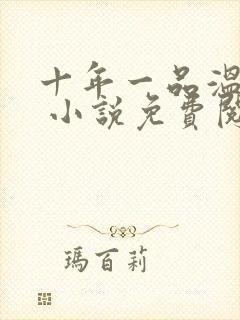 十年一品溫
小說免費閱
瑪百莉